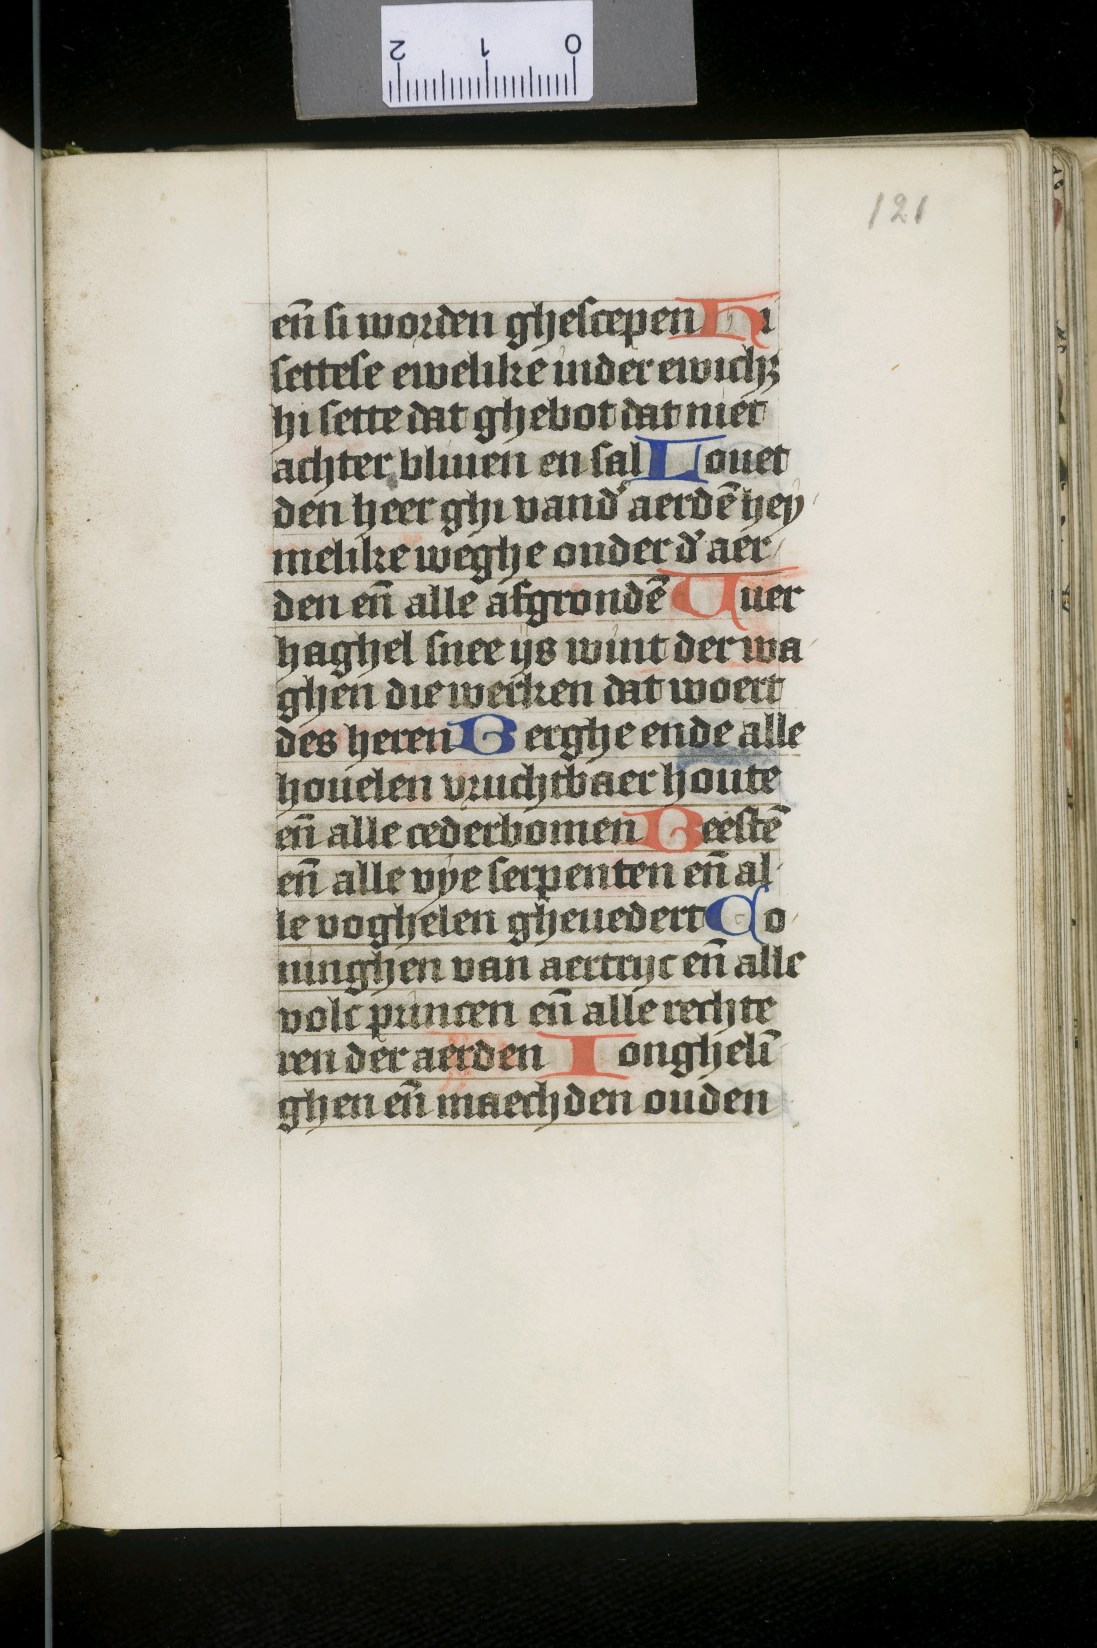 2 1 0
121
en̄ si worden ghescepen Hi
settese ewelike in der ewichꝫ
hi sette dat ghebot dat niet
achter bliuen en sal Louet
den heer ghi vand' aerdē hey
melike weghe onder d' aer
den en̄ alle afgrondē Vuer
haghel snee ijs wint der wa
ghen die werken dat woert
des heren Berghe ende alle
houelen vruchtbaer houte
en̄ alle cederbomen Beestē
en̄ alle vye serpenten en̄ al
le voghelen gheuedert Co
ninghen van aertryc en̄ alle
volc princen en̄ alle rechte
ren der aerden Ionghelī
ghen en̄ maechden ouden